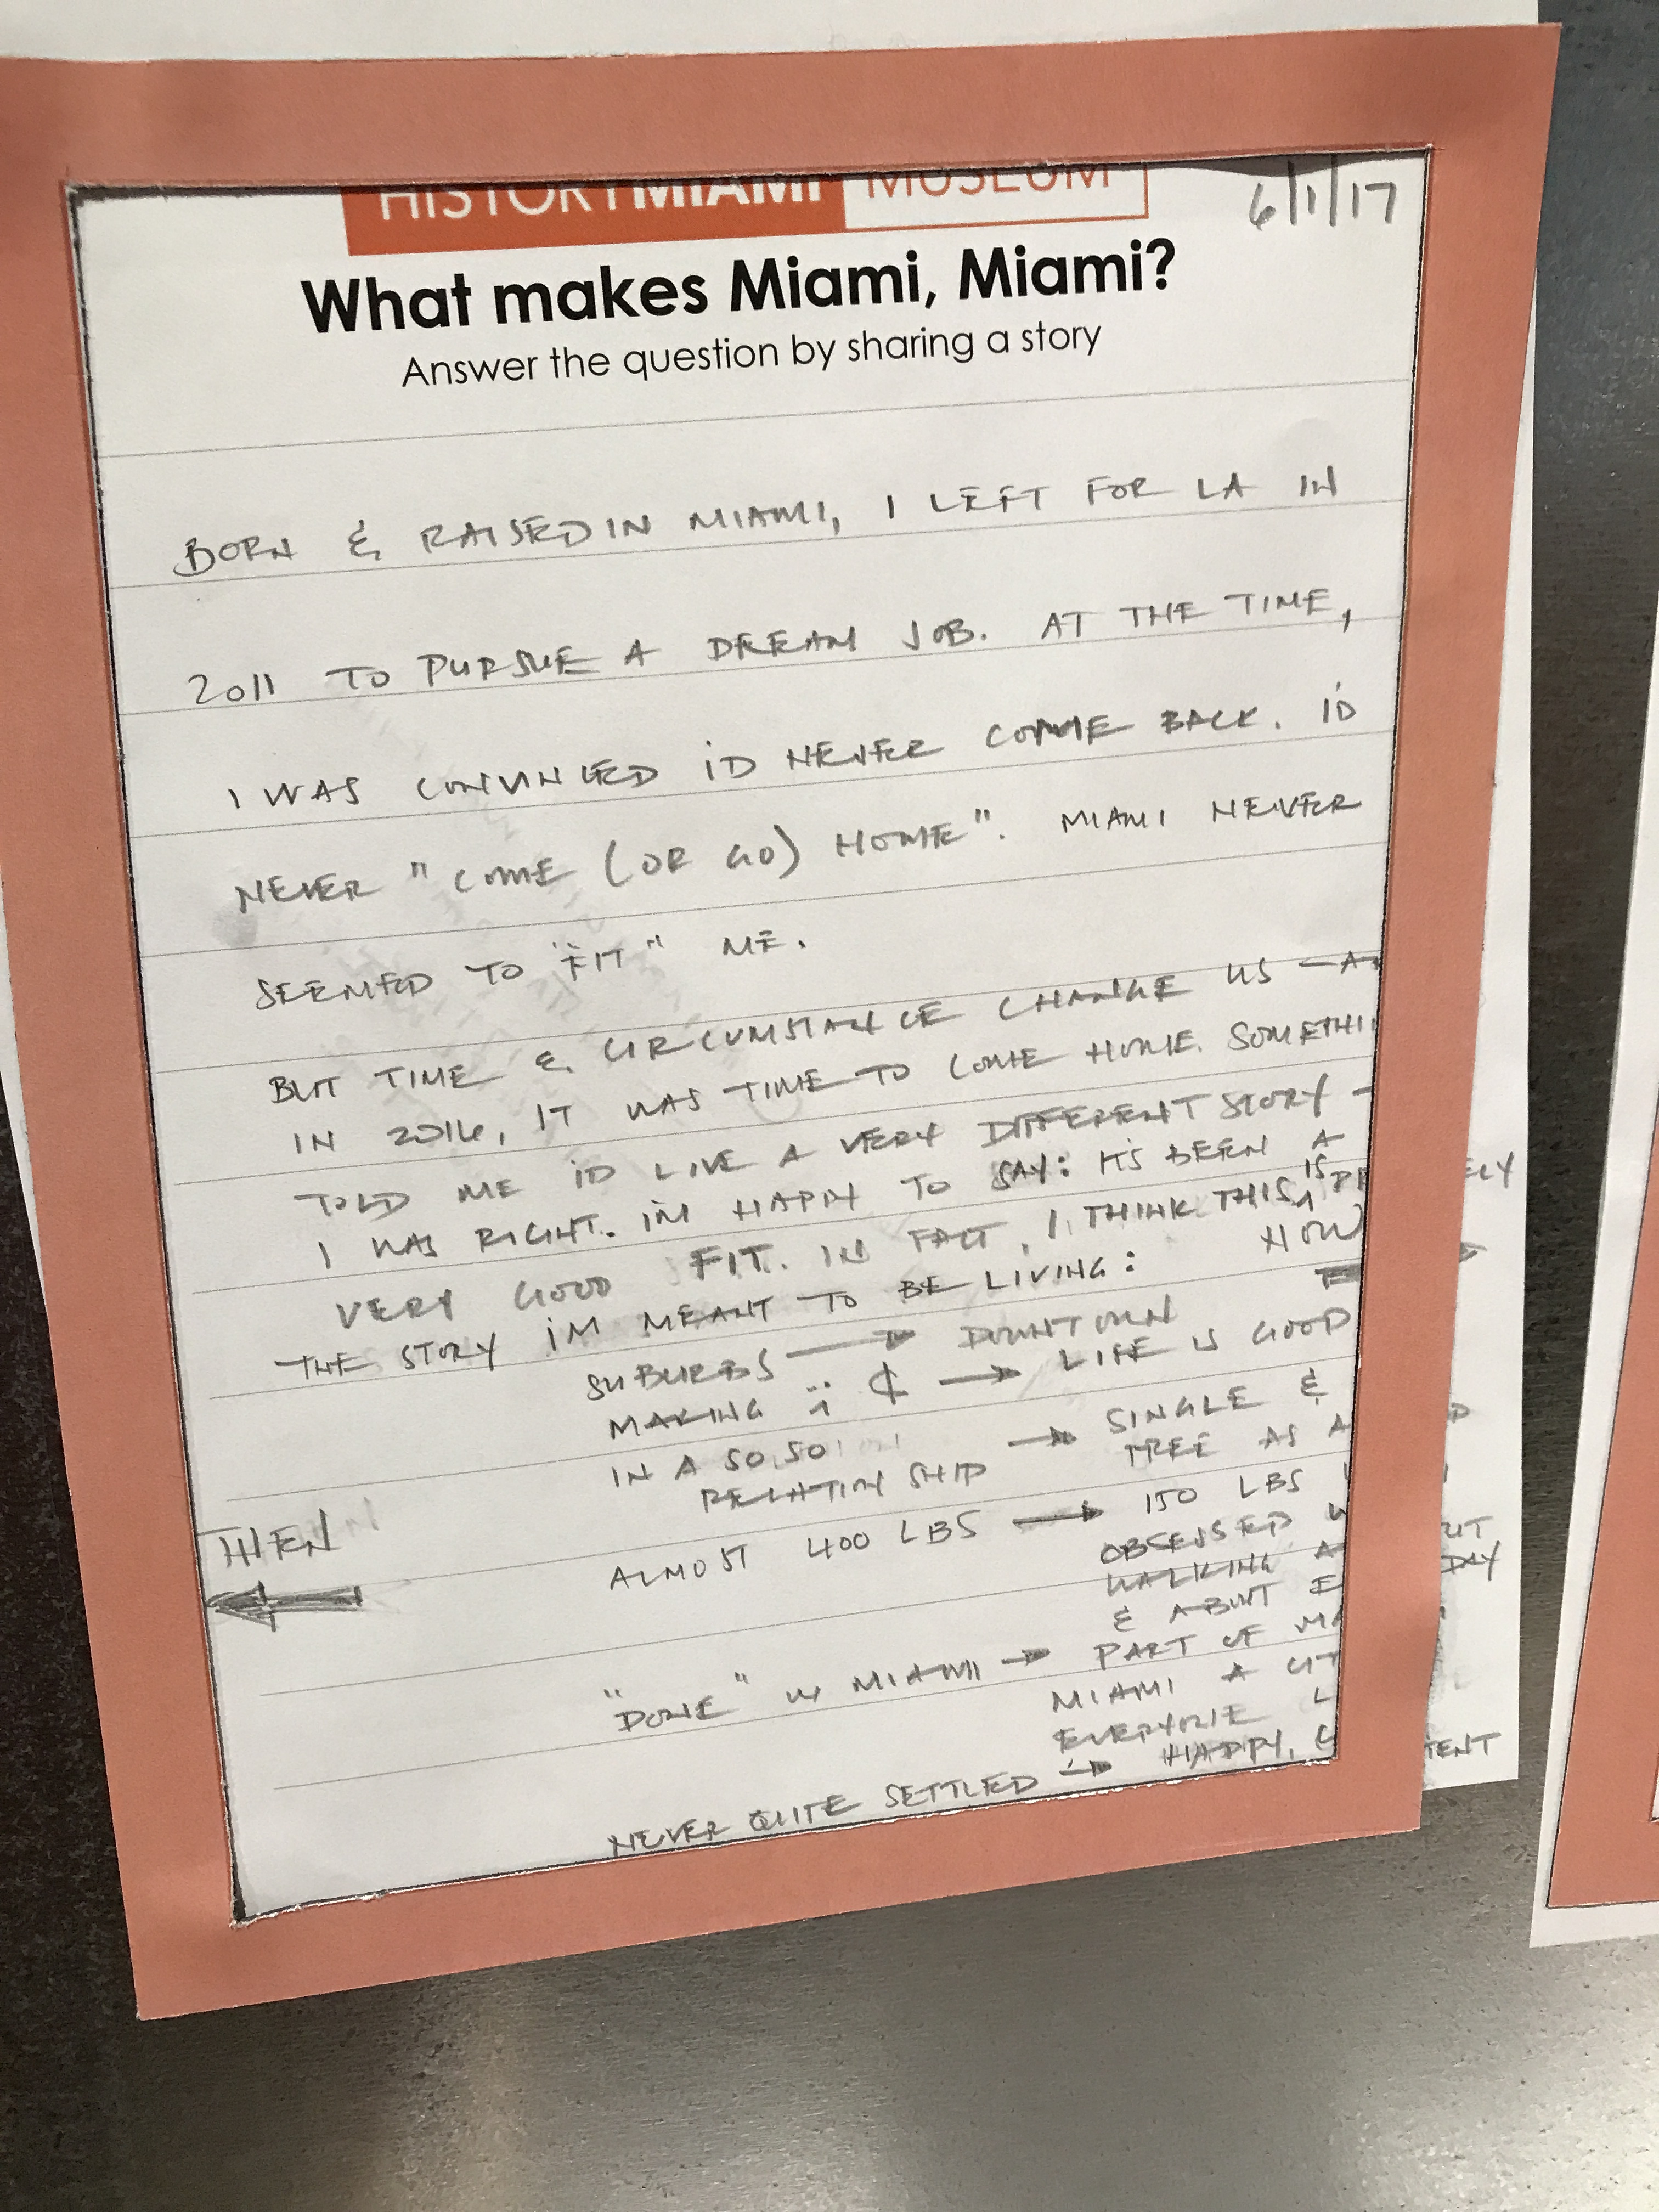 HISTORYMIAMI MUSEUM
6/1/17
What makes Miami, Miami?
Answer the question by sharing a story
BORN & RAISED IN MIAMI, I LEFT FOR LA IN
2011 TO PURSUE A DREAM JOB. AT THE TIME,
I WAS CONVINCED I'D NEVER COME BACK. I'D
NEVER "COME (OR GO) HOME". MIAMI NEVER
SEEMED TO "FIT" ME.
BUT TIME & CIRCUMSTANCE CHANGE US - A
IN 2016, IT WAS TIME TO COME HOME. SOMETHI
TOLD ME I'D LIVE A VERY DIFFERENT STORY -
I WAS RIGHT. I'M HAPPY TO SAY: IT'S BEEN A
VERY GOOD FIT. IN FACT, I THINK THIS IS
THE STORY I'M MEANT TO BE LIVING: NOW
SUBURBS → DOWNTOWN
MAKING ¢ → LIFE IS GOOD
IN A SO, SO → SINGLE &
RELATIONSHIP FREE AS A
THEN
ALMOST 400 LBS → 150 LBS
OBSESSED W
WALKING
& ABOUT E
"DONE" W MIAMI → PART OF MA
MIAMI A CIT
EVERYONE L
NEVER QUITE SETTLED → HAPPY, C
ELY
UT
DAY
TENT